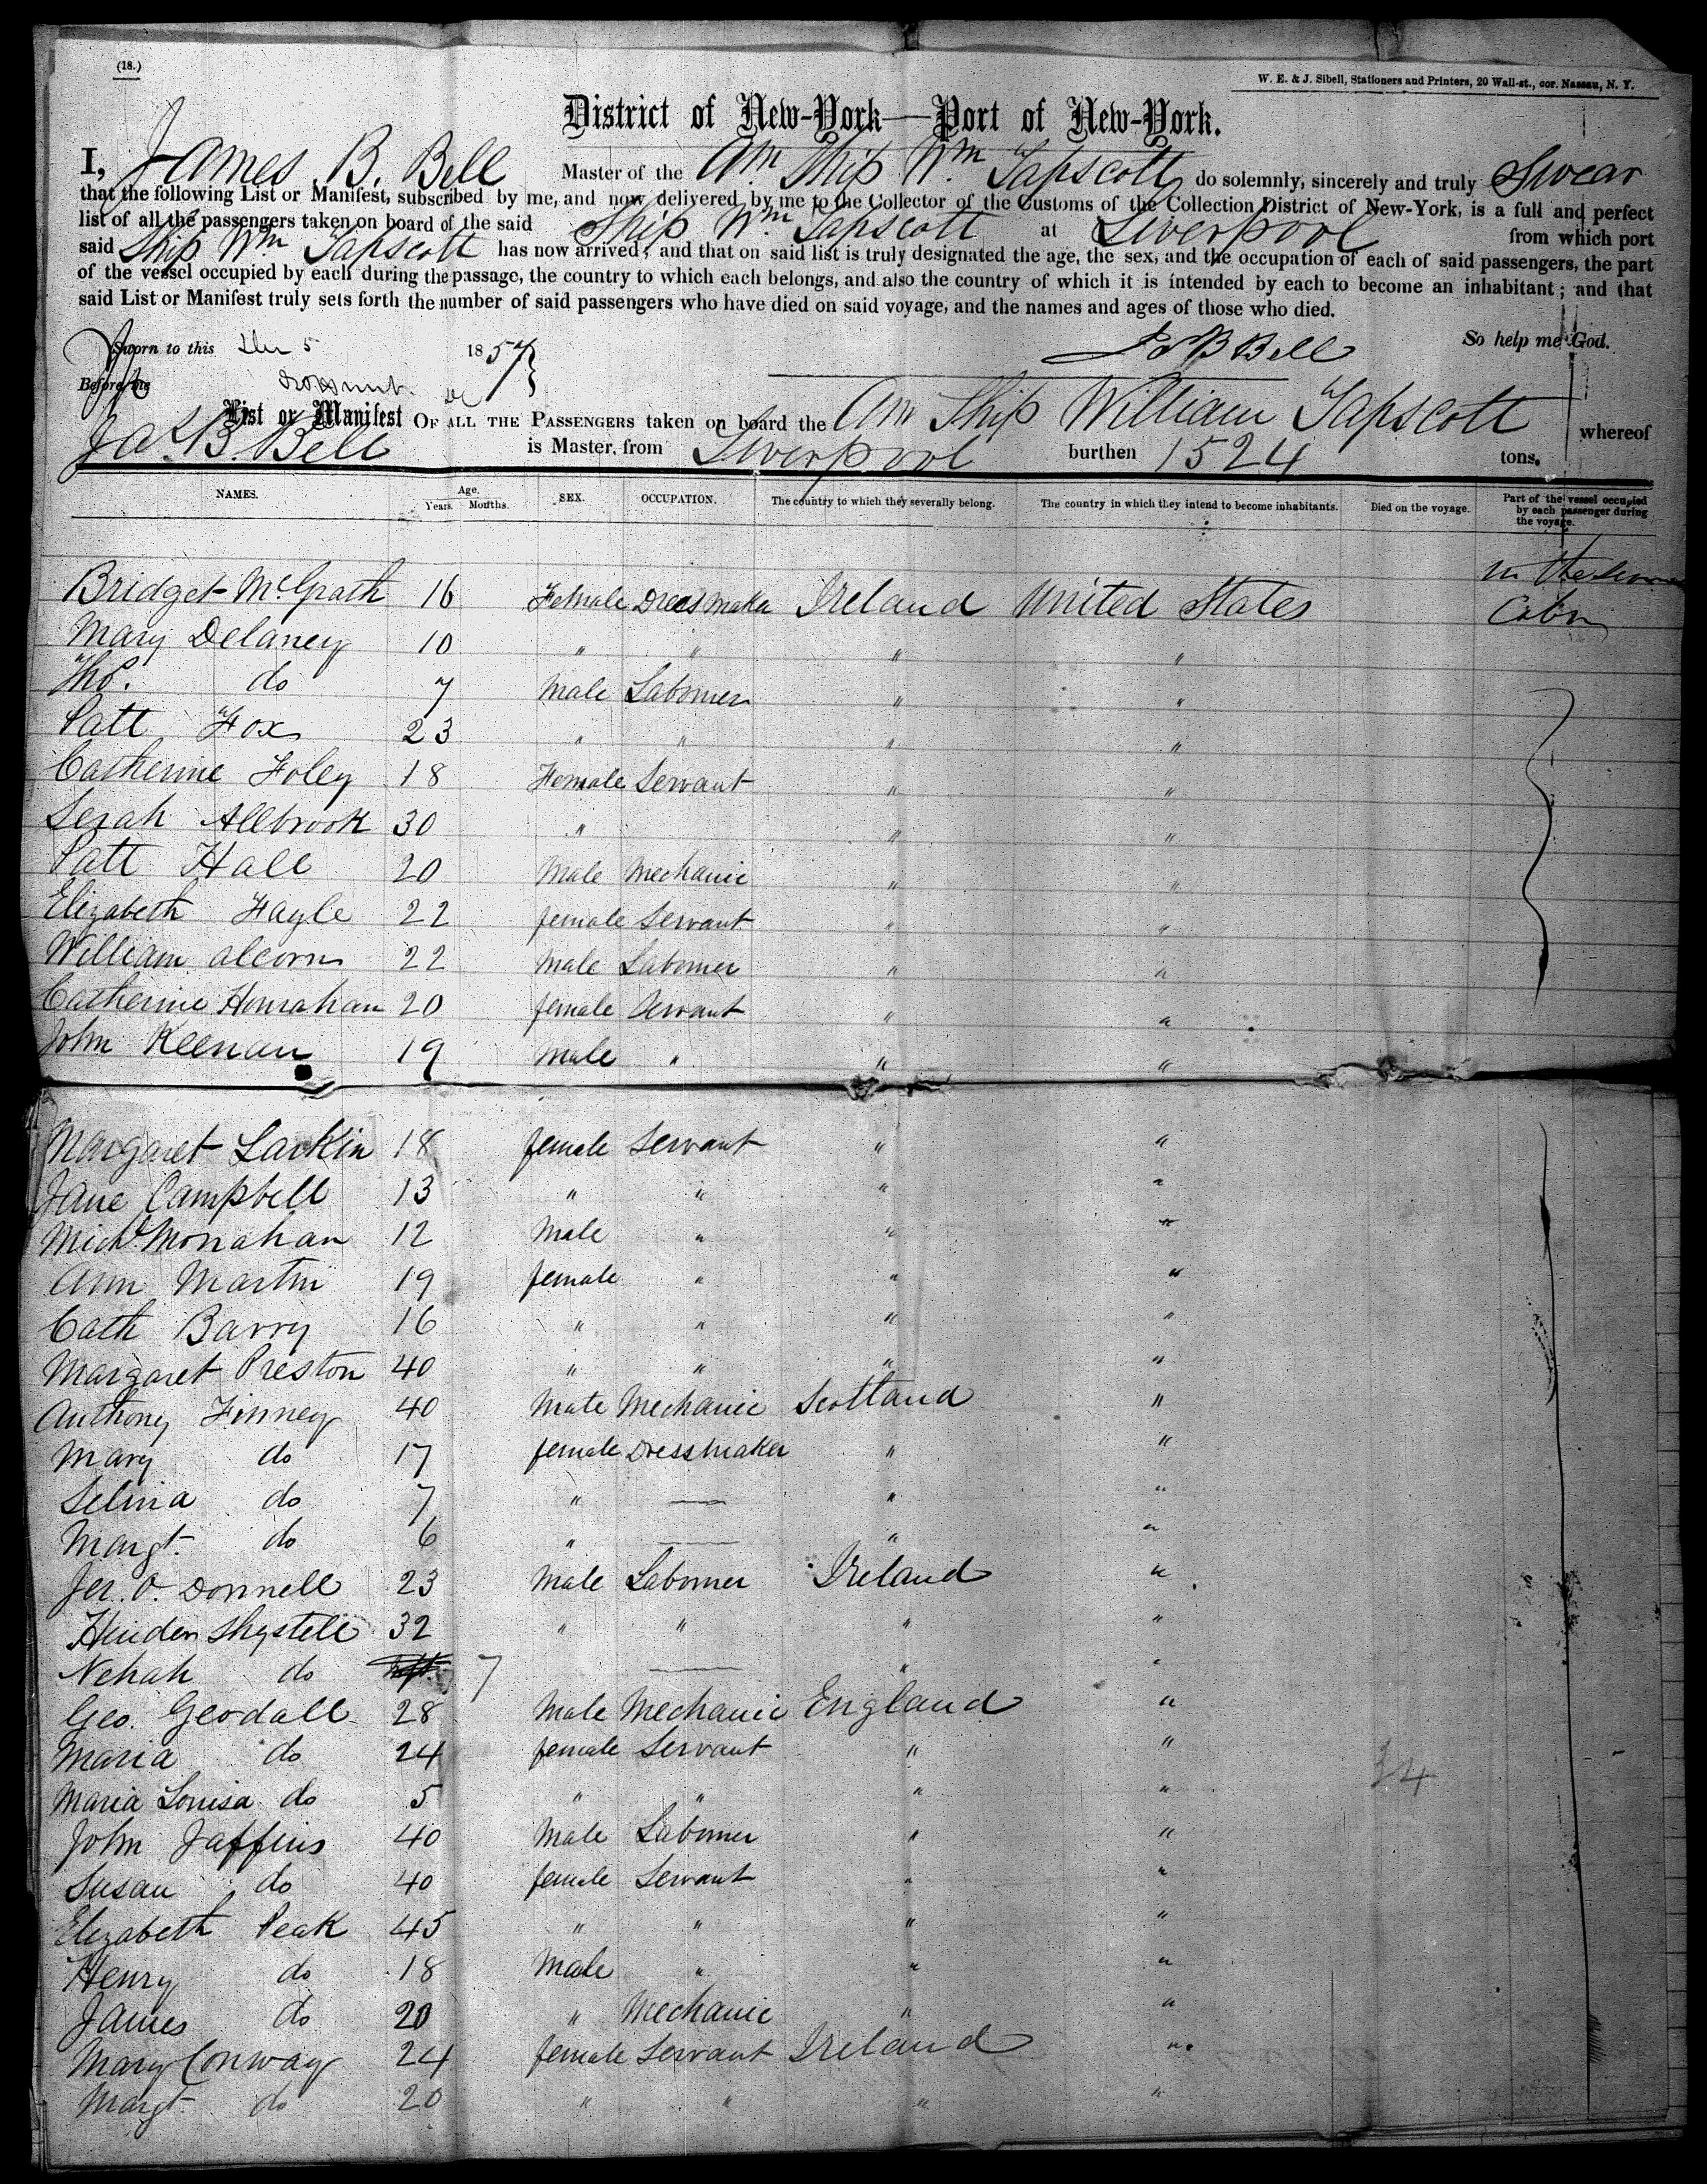 (18.)
W. E. & J. Sibell, Stationers and Printers, 20 Wall-st., cor. Nassau, N. Y.
District of New-York—Port of New-York.
I, James B. Bell Master of the Am Ship Wm Tapscott do solemnly, sincerely and truly Swear
that the following List or Manifest, subscribed by me, and now delivered by me to the Collector of the Customs of the Collection District of New-York, is a full and perfect
list of all the passengers taken on board of the said Ship Wm Tapscott at Liverpool from which port
said Ship Wm Tapscott has now arrived; and that on said list is truly designated the age, the sex, and the occupation of each of said passengers, the part
of the vessel occupied by each during the passage, the country to which each belongs, and also the country of which it is intended by each to become an inhabitant; and that
said List or Manifest truly sets forth the number of said passengers who have died on said voyage, and the names and ages of those who died.
Sworn to this 5 1857 J B Bell So help me God.
Before me
List or Manifest OF ALL THE PASSENGERS taken on board the Am Ship William Tapscott whereof
Jas B. Bell is Master, from Liverpool burthen 1524 tons.
NAMES. Age. Years. Months. SEX. OCCUPATION. The country to which they severally belong. The country in which they intend to become inhabitants. Died on the voyage. Part of the vessel occupied by each passenger during the voyage.
in the
Bridget McGrath 16 Female Dress maker Ireland United States Cabin
Mary Delaney 10 " " " "
Tho. do 7 Male Labourer " "
Patt Fox 23 " " " "
Catherine Foley 18 Female Servant " "
Serah Allbrook 30 " " "
Patt Hall 20 Male Mechanic " "
Elizabeth Fayle 22 female Servant " "
William Alcorn 22 Male Labourer " "
Catherine Hourahan 20 female Servant " "
John Keenan 19 Male " " "
Margaret Larkin 18 female Servant " "
Jane Campbell 13 " " " "
Michl Monahan 12 Male " " "
Ann Martin 19 female " " "
Cath Barry 16 " " " "
Margaret Preston 40 " " " "
Anthony Finney 40 Male Mechanic Scotland "
Mary do 17 female Dressmaker " "
Selina do 7 " — " "
Margt. do 6 " — " "
Jer. O. Donnell 23 Male Labourer Ireland "
Hinden Shystell 32 " " " "
Nehah do 7 — " "
Geo. Geodall 28 Male Mechanic England "
Maria do 24 female Servant " "
Maria Louisa do 5 " " " "
34
John Jaffins 40 Male Labourer " "
Susan do 40 female Servant " "
Elizabeth Peak 45 " " " "
Henry do 18 Male " " "
James do 20 " Mechanic " "
Mary Conway 24 female Servant Ireland "
Margt do 20 " " " "